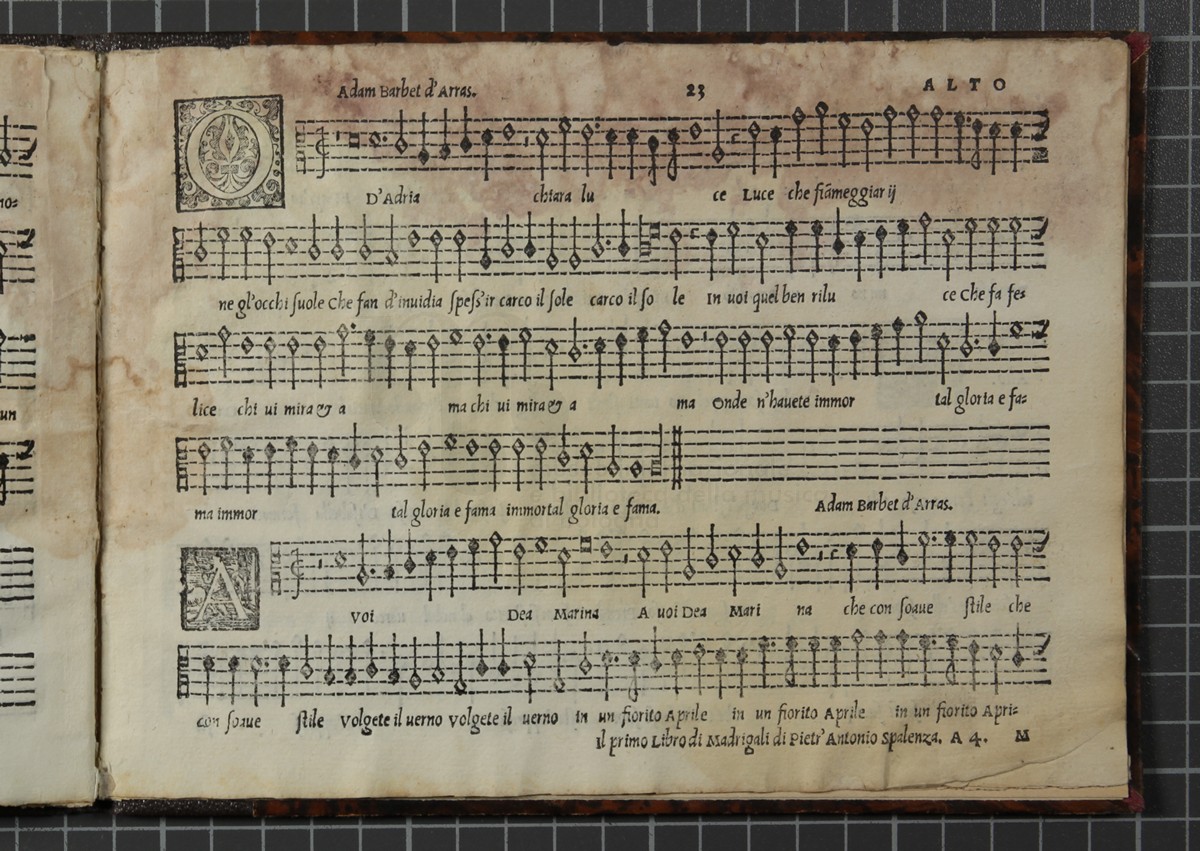 Adam Barbet d'Arras. 23 ALTO
O
D'Adria chiara lu ce Luce che fiãmeggiar ij
ne gl'occhi ſuole Che fan d'inuidia ſpeſs'ir carco il ſole carco il ſo le In uoi quel ben rilu ce Che fa fe=
lice chi ui mira & a ma chi ui mira & a ma Onde n'hauete immor tal gloria e fa=
ma immor tal gloria e fama immortal gloria e fama. Adam Barbet d'Arras.
A
voi Dea Marina A uoi Dea Mari na che con ſoaue ſtile che
con ſoaue ſtile Volgete il uerno Volgete il uerno in un fiorito Aprile in un fiorito Aprile in un fiorito Apri=
Il primo Libro di Madrigali di Pietr'Antonio Spalenza. A 4. M
no=
un